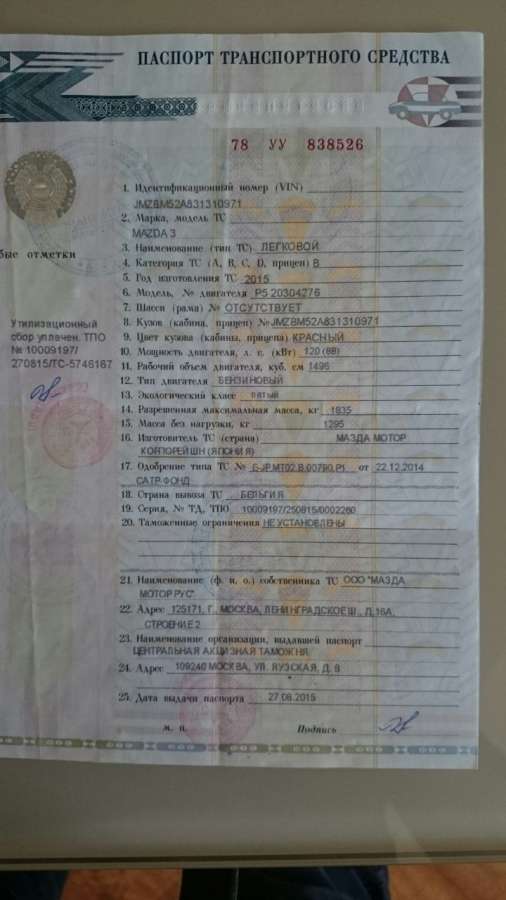 ПАСПОРТ ТРАНСПОРТНОГО СРЕДСТВА
78 УУ 838526
1. Идентификационный номер (VIN)
JMZBM52A831310971
2. Марка, модель ТС
MAZDA 3
3. Наименование (тип ТС) ЛЕГКОВОЙ
4. Категория ТС (А, В, С, D, прицеп) B
5. Год изготовления ТС 2015
6. Модель, № двигателя P5 20304276
7. Шасси (рама) № ОТСУТСТВУЕТ
8. Кузов (кабина, прицеп) № JMZBM52A831310971
9. Цвет кузова (кабины, прицепа) КРАСНЫЙ
10. Мощность двигателя, л. с. (кВт) 120 (88)
11. Рабочий объем двигателя, куб. см 1496
12. Тип двигателя БЕНЗИНОВЫЙ
13. Экологический класс пятый
14. Разрешенная максимальная масса, кг 1835
15. Масса без нагрузки, кг 1295
16. Изготовитель ТС (страна) МАЗДА МОТОР
КОРПОРЕЙШН (ЯПОНИЯ)
17. Одобрение типа ТС № E-JP.MT02.B.00790.P1 от 22.12.2014
САТР-ФОНД
18. Страна вывоза ТС БЕЛЬГИЯ
19. Серия, № ТД, ТПО 10009197/250815/0002260
20. Таможенные ограничения НЕ УСТАНОВЛЕНЫ
21. Наименование (ф. и. о.) собственника ТС ООО "МАЗДА
МОТОР РУС"
22. Адрес 125171, Г. МОСКВА, ЛЕНИНГРАДСКОЕ Ш., Д.16А,
СТРОЕНИЕ 2
23. Наименование организации, выдавшей паспорт
ЦЕНТРАЛЬНАЯ АКЦИЗНАЯ ТАМОЖНЯ
24. Адрес 109240 МОСКВА, УЛ. ЯУЗСКАЯ, Д. 8
25. Дата выдачи паспорта 27.08.2015
М. П. Подпись
бые отметки
Утилизационный
сбор уплачен. ТПО
№ 10009197/
270815/ТС-5746167